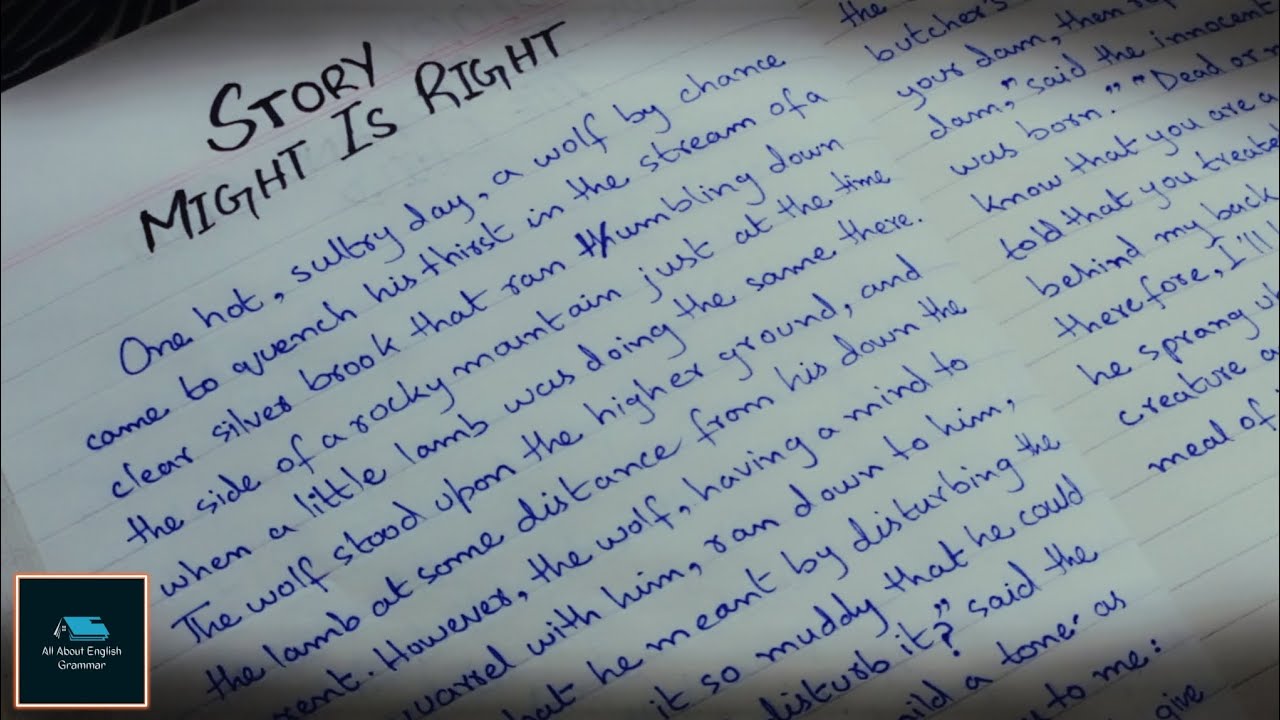 STORY
MIGHT IS RIGHT
One hot, sultry day, a wolf by chance
came to quench his thirst in the stream of a
clear silver brook that ran tumbling down
the side of a rocky mountain just at the time
when a little lamb was doing the same there.
The wolf stood upon the higher ground, and
the lamb at some distance from his down the
rent. However, the wolf, having a mind to
uarrel with him, ran down to him,
hat he meant by disturbing the
it so muddy that he could
disturb it?" said the
ild a tone as
to me:
give
the
butcher's
your dam, then
dam," said the innocent
was born." "Dead or
know that you are a
told that you treate
behind my back
therefore, I'll
he sprang
creature a
meal of
All About English
Grammar